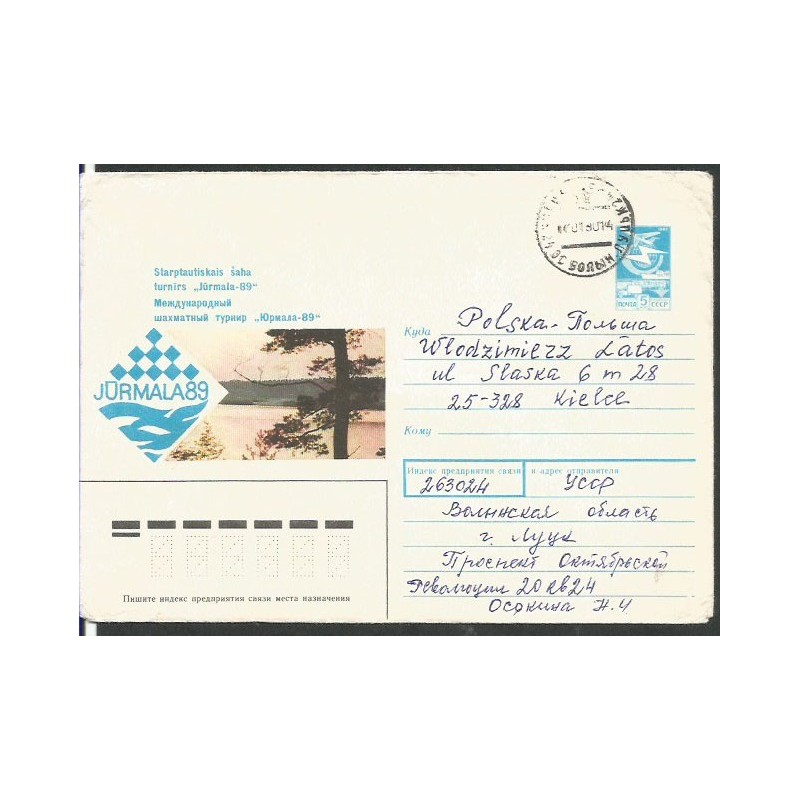 Starptautiskais šaha
turnīrs „Jūrmala-89"
Международный
шахматный турнир „Юрмала-89"
JŪRMALA89
ПОЧТА 5 СССР
Куда Polska-Польша
Wlodzimierz Latos
ul Slaska 6 m 28
25-328 Kielce
Кому
Индекс предприятия связи и адрес отправителя
263024 УССР
Волынская область
г. Луцк
Проспект Октябрьской
Революции 20 кв 24
Осокина Н. Ч
Пишите индекс предприятия связи места назначения